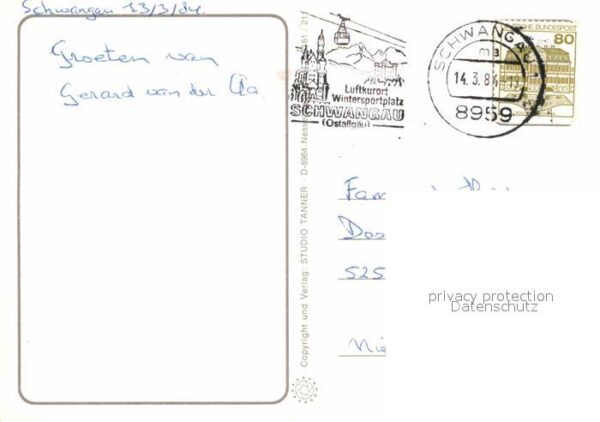 Schwangau 13/3/84.
Groeten van
Gerard van der
Luftkurort
Wintersportplatz
SCHWANGAU
(Ostallgäu)
SCHWANGAU 1
ma
14.3.84
8959
80
DEUTSCHE BUNDESPOST
Copyright und Verlag: STUDIO TANNER · D-8964
Fam
525
privacy protection
Datenschutz